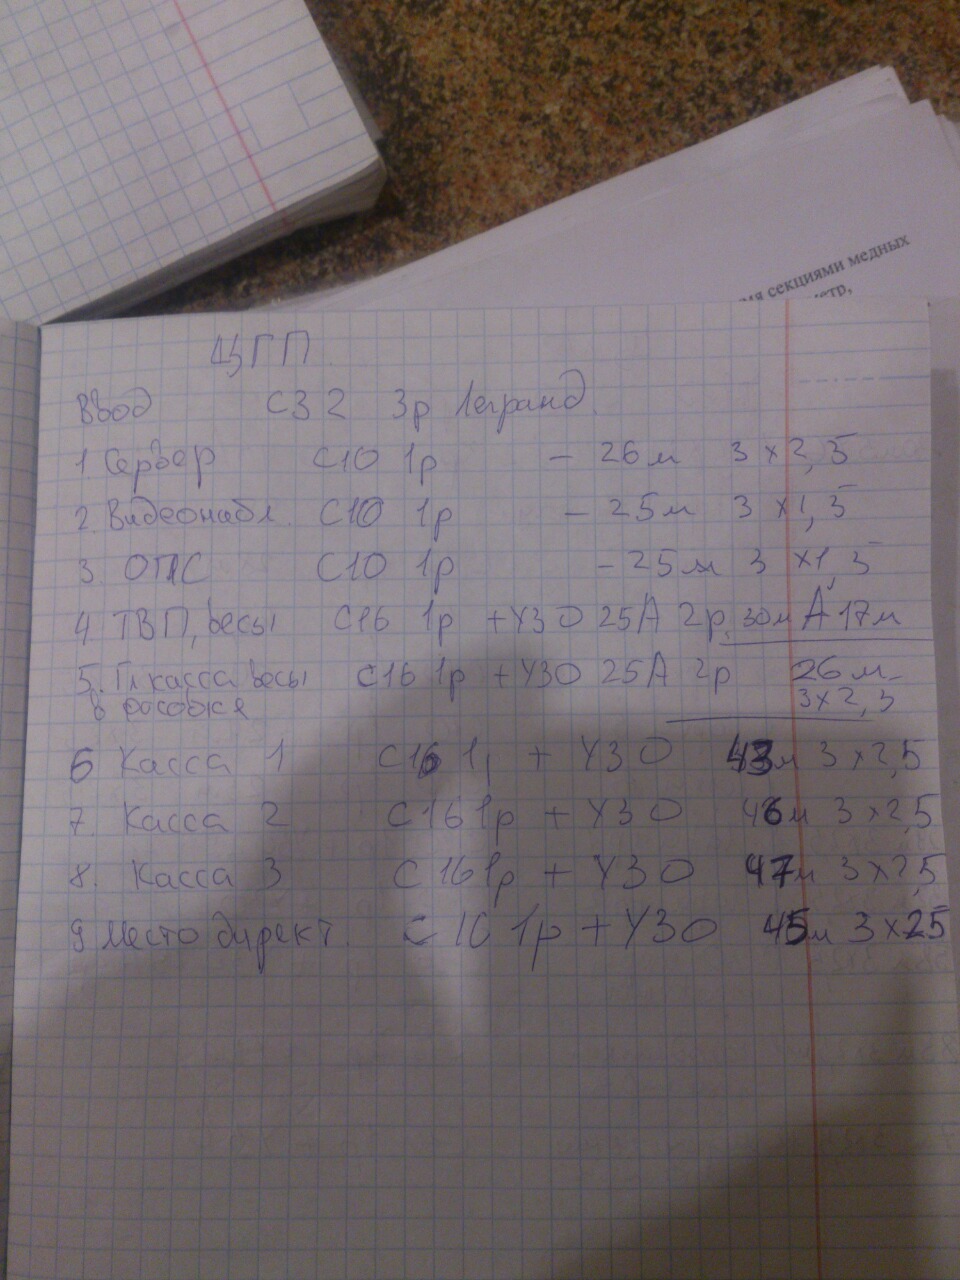 мя секциями медных
метр,
ЩГП
Ввод С32 3р Легранд.
1 Сервер С10 1р - 26м 3×2,5
2. Видеонабл. С10 1р - 25м 3×1,5
3. ОПС С10 1р - 25м 3×1,5
4 ТВП, весы С16 1р +УЗО 25А 2р, 30м А 17м
5. Гл касса весы С16 1р +УЗО 25А 2р 26м
в фасовке 3×2,5
6 Касса 1 С16 1р + УЗО 43м 3×2,5
7. Касса 2 С16 1р + УЗО 46м 3×2,5
8. Касса 3 С16 1р + УЗО 47м 3×2,5
9 Место директ. С16 1р + УЗО 45м 3×25